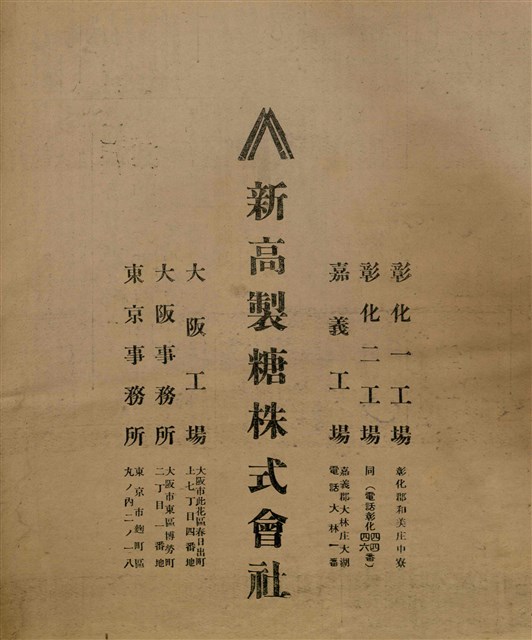 彰化一工場
彰化郡和美庄中寮
彰化二工場
同(電話彰化四四四六番)
嘉義工場
嘉義郡大林庄大湖
電話大林一番
新高製糖株式會社
大阪工場
大阪市此花區春日出町
上七丁目四番地
大阪事務所
大阪市東區博勞町
二丁目一番地
東京事務所
東京市麹町區
丸ノ內二ノ一八